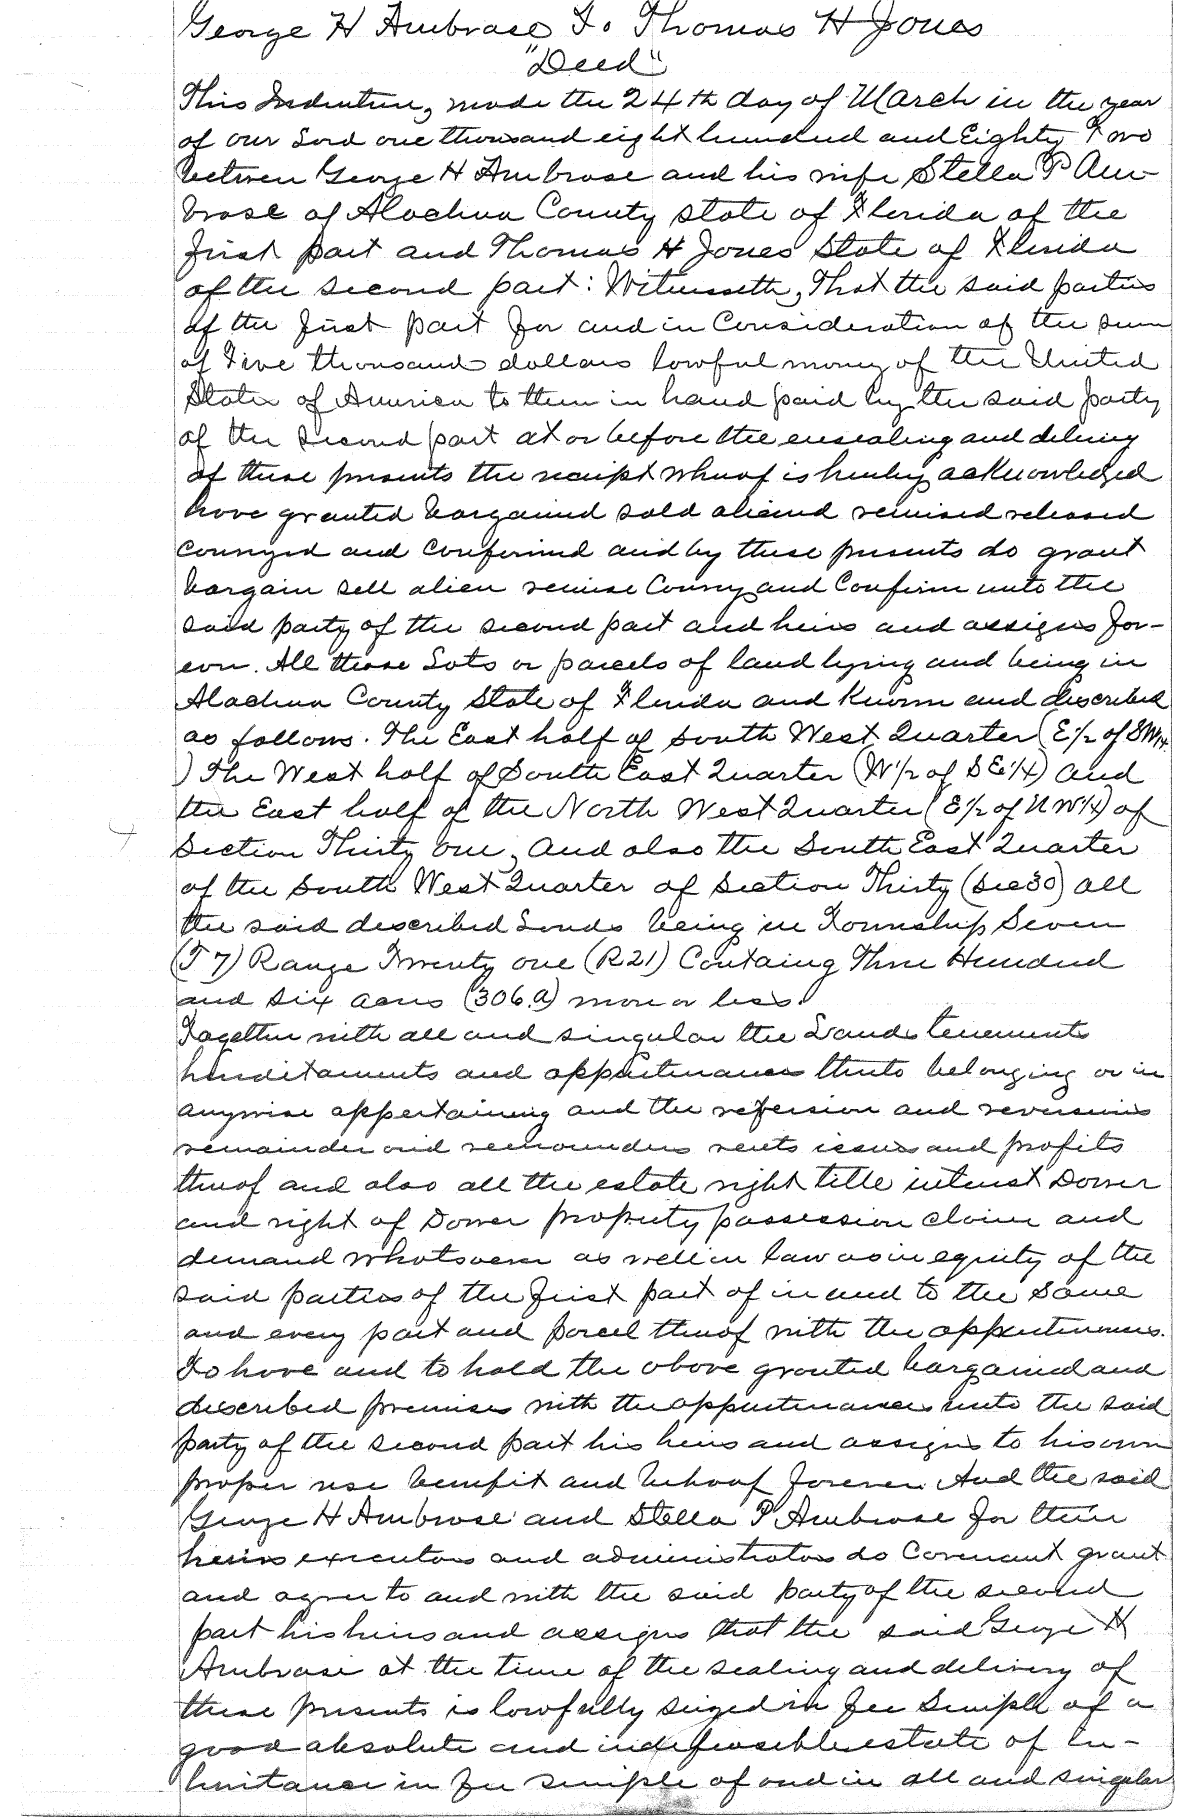 George H Ambrose To Thomas H Jones
"Deed"
This Indenture, made the 24th day of March in the year
of our Lord one thousand eight hundred and Eighty Two
between George H Ambrose and his wife Stella P Am-
brose of Alachua County state of Florida of the
first part and Thomas H Jones State of Florida
of the second part: Witnesseth, That the said parties
of the first part for and in Consideration of the sum
of Five thousand dollars lawful money of the United
States of America to them in hand paid by the said party
of the second part at or before the ensealing and delivery
of these presents the receipt whereof is hereby acknowledged
have granted bargained sold aliened remised released
conveyed and confirmed and by these presents do grant
bargain sell alien remise Convey and Confirm unto the
said party of the second part and heirs and assigns for-
ever. All those Lots or parcels of land lying and being in
Alachua County State of Florida and known and described
as follows. The East half of South West Quarter (E 1/2 of SW 1/4
) The West half of South East Quarter (W 1/2 of S E 1/4) and
the East half of the North West Quarter (E 1/2 of N W 1/4) of
Section Thirty one, And also the South East Quarter
of the South West Quarter of Section Thirty (Sec 30) all
the said described Lands being in Township Seven
(T 7) Range Twenty one (R 21) Containg Three Hundred
and six acres (306.a) more or less.
Together with all and singular the Lands tenements
hereditaments and appurtenances thereto belonging or in
anywise appertaining and the reversion and reversions
remainder and remainders rents issues and profits
thereof and also all the estate right title interest Dower
and right of Dower property possession claim and
demand whatsoever as well in law as in equity of the
said parties of the first part of in and to the same
and every part and parcel thereof with the appurtenances.
To have and to hold the above granted bargained and
described premises with the appurtenances unto the said
party of the second part his heirs and assigns to his own
proper use benefit and behoof forever. And the said
George H Ambrose and Stella P Ambrose for their
heirs executors and administrators do Covenant grant
and agree to and with the said party of the second
part his heirs and assigns that the said George H
Ambrose at the time of the sealing and delivery of
these presents is lawfully seized in fee Simple of a
good absolute and indefeasible estate of in-
heritance in fee simple of and in all and singular